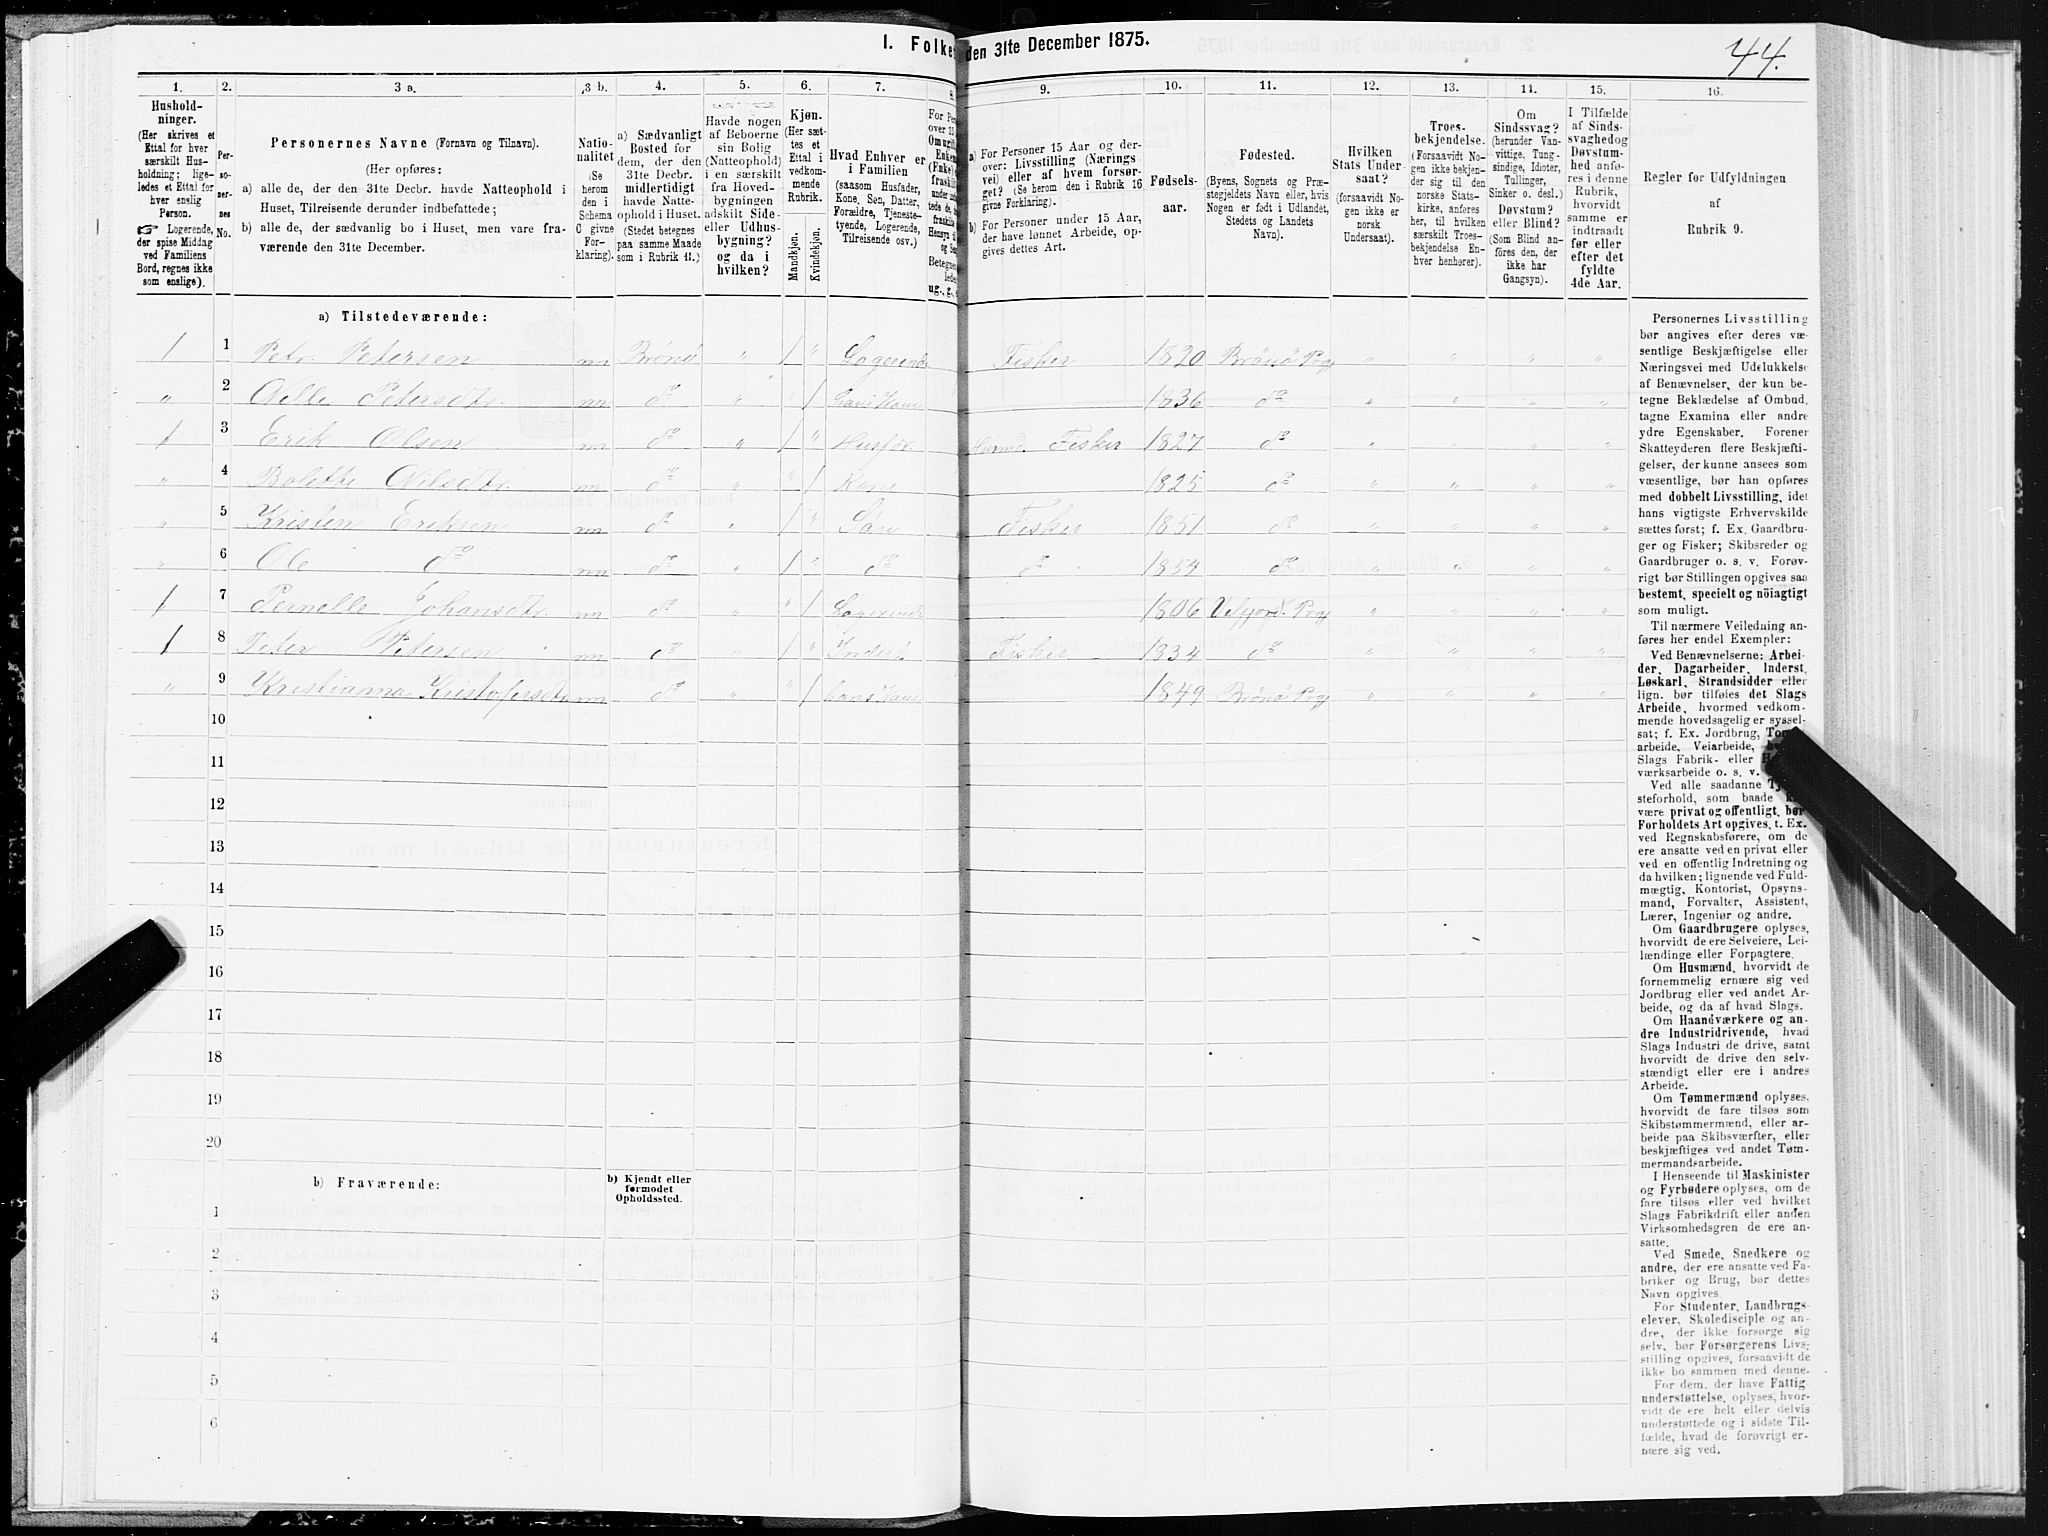 44.
I. Folke
den 31te December 1875.
1. 2. 3 a. 3 b. 4. 5. 6. 7. 8. 9. 10. 11. 12. 13. 14. 15. 16.
Hushold-
ninger.
(Her skrives et
Ettal for hver
særskilt Hus-
holdning; lige-
ledes et Ettal for
hver enslig
Person.
☞ Logerende,
der spise Middag
ved Familiens
Bord, regnes ikke
som enslige).
Per-
so-
ner-
nes
No.
Personernes Navne (Fornavn og Tilnavn).
(Her opføres:
a) alle de, der den 31te Decbr. havde Natteophold i
Huset, Tilreisende derunder indbefattede;
b) alle de, der sædvanlig bo i Huset, men vare fra-
værende den 31te December.
Natio-
nalitet
(Se
herom
den i
Schema
C givne
For-
klaring).
a) Sædvanligt
Bosted for
dem, der den
31te Decbr.
midlertidigt
havde Natte-
ophold i Huset.
(Stedet betegnes
paa samme Maade
som i Rubrik 11.)
Havde nogen
af Beboerne
sin Bolig
(Natteophold)
i en særskilt
fra Hoved-
bygningen
adskilt Side-
eller Udhus-
bygning?
og da i
hvilken?
Kjøn.
(Her sæt-
tes et
Ettal i
vedkom-
mende
Rubrik.
Mandkjøn.
Kvindekjøn.
Hvad Enhver er
i Familien
(saasom Husfader,
Kone, Søn, Datter,
Forældre, Tjeneste-
tyende, Logerende,
Tilreisende osv.)
a) For Personer 15 Aar og der-
over: Livsstilling (Nærings-
vei) eller af hvem forsør-
get? (Se herom den i Rubrik 16
givne Forklaring).
b) For Personer under 15 Aar,
der have lønnet Arbeide, op-
gives dettes Art.
Fødsels-
aar.
Fødested.
(Byens, Sognets og Præ-
stegjeldets Navn eller, hvis
Nogen er født i Udlandet,
Stedets og Landets
Navn).
Hvilken
Stats Under-
saat?
(forsaavidt No-
gen ikke er
norsk
Undersaat).
Troes-
bekjendelse.
(Forsaavidt No-
gen ikke bekjen-
der sig til den
norske Stats-
kirke, anføres
her, til hvilken
særskilt Troes-
bekjendelse En-
hver henhører).
Om
Sindssvag?
(herunder Van-
vittige, Tung-
sindige, Idioter,
Tullinger,
Sinker o. desl.)
Døvstum?
eller Blind?
(Som Blind an-
føres den, der
ikke har
Gangsyn).
I Tilfælde
af Sinds-
svaghed og
Døvstum-
hed anfø-
res i denne
Rubrik,
hvorvidt
samme er
indtraadt
før eller
efter det
fyldte
4de Aar.
Regler for Udfyldningen
af
Rubrik 9.
a) Tilstedeværende:
1 1 Petersen " 1 " Logerende Fisker 1820 Brönö Prgj " " " "
" 2 Petersdtr. do " " 1 1836 do " " " "
1 3 Erik Olsen do " 1 " Husfdr. Fisker 1827 do " " " "
" 4 Bolette Nilsdtr. do " " 1 Kone 1825 do " " " "
" 5 Kristen Eriksen do " 1 " Sön Fisker 1851 do " " " "
" 6 Ole do do " 1 " do do 1854 do " " " "
1 7 Pernelle Johansdtr. do " " 1 Logerende 1806 Prgj " " " "
1 8 Peter Petersen do " 1 " Inderst Fisker 1834 do " " " "
" 9 Kristianna Kristofersdtr. do " " 1 Kone 1849 Brönö Prgj " " " "
10
11
12
13
14
15
16
17
18
19
20
b) Fraværende:
b) Kjendt eller
formodet
Opholdssted.
1
2
3
4
5
6
Personernes Livsstilling
bør angives efter deres væ-
sentlige Beskjæftigelse eller
Næringsvei med Udelukkelse
af Benævnelser, der kun be-
tegne Beklædelse af Ombud,
tagne Examina eller andre
ydre Egenskaber. Forener
Skatteyderen flere Beskjæfti-
gelser, der kunne ansees som
væsentlige, bør han opføres
med dobbelt Livsstilling, idet
hans vigtigste Erhvervskilde
sættes først; f. Ex. Gaardbru-
ger og Fisker; Skibsreder og
Gaardbruger o. s. v. Forøv-
rigt bør Stillingen opgives saa
bestemt, specielt og nöiagtigt
som muligt.
Til nærmere Veiledning an-
føres her endel Exempler:
Ved Benævnelserne: Arbei-
der, Dagarbeider, Inderst,
Løskarl, Strandsidder eller
lign. bør tilføies det Slags
Arbeide, hvormed vedkom-
mende hovedsagelig er syssel-
sat; f. Ex. Jordbrug,
arbeide, Veiarbeide,
Slags Fabrik- eller
værksarbeide o. s. v.
Ved alle saadanne
steforhold, som baade
være privat og offentligt, bør
Forholdets Art opgives, t. Ex.
ved Regnskabsførere, om de
ere ansatte ved en privat eller
ved en offentlig Indretning og
da hvilken; lignende ved Fuld-
mægtig, Kontorist, Opsyns-
mand, Forvalter, Assistent,
Lærer, Ingeniør og andre.
Om Gaardbrugere oplyses,
hvorvidt de ere Selveiere, Lei-
lændinge eller Forpagtere.
Om Husmænd, hvorvidt de
fornemmelig ernære sig ved
Jordbrug eller ved andet Ar-
beide, og da af hvad Slags.
Om Haandværkere og an-
dre Industridrivende, hvad
Slags Industri de drive, samt
hvorvidt de drive den selv-
stændigt eller ere i andres
Arbeide.
Om Tømmermænd oplyses,
hvorvidt de fare tilsøs som
Skibstømmermænd, eller ar-
beide paa Skibsværfter, eller
beskjæftiges ved andet Tøm-
mermandsarbeide.
I Henseende til Maskinister
og Fyrbødere oplyses, om de
fare tilsøs eller ved hvilket
Slags Fabrikdrift eller anden
Virksomhedsgren de ere an-
satte.
Ved Smede, Snedkere og
andre, der ere ansatte ved Fa-
briker og Brug, bør dettes
Navn opgives.
For Studenter, Landbrugs-
elever, Skoledisciple og an-
dre, der ikke forsørge sig
selv, bør Forsørgerens Livs-
stilling opgives, forsaavidt de
ikke bo sammen med denne.
For dem, der have Fattig-
understøttelse, oplyses, hvor-
vidt de ere helt eller delvis
understøttede og i sidste Til-
fælde, hvad de forøvrigt er-
nære sig ved.